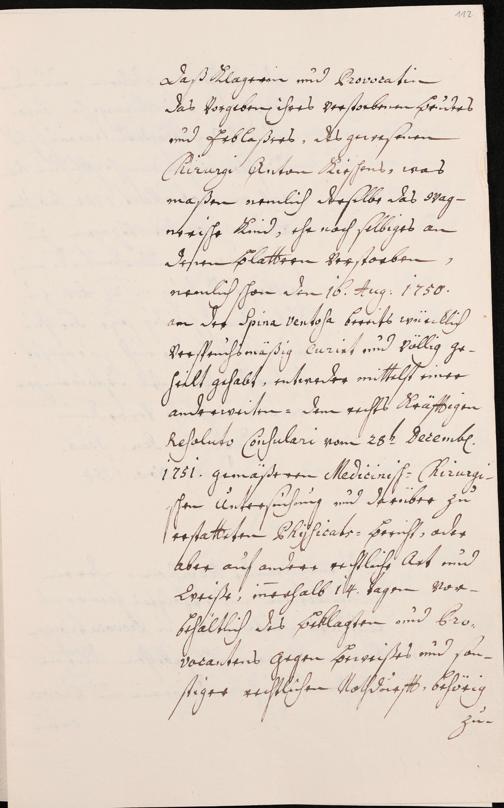 112
Daß Klägerin und Provocatin
das Vorgeben ihres verstorbenen Bruders
und Erblaßers, des gewesenen
Chirurgi Anton Kießens, was
maßen nemlich derselbe das Wag-
nerische Kind, ehe noch selbiges an
denen Blattern verstorben,
nemlich schon den 16. Aug. 1750.
an der Spina ventosa bereits würcklich
versprechsmäßig curirt und völlig ge-
heilt gehabt, entweder mittelst einer
anderweiten- dem rechts kräfftigen
Resoluto Consulari vom 28t Decembr.
1751. gemäßeren Medicinisch-Chirurgi-
schen Untersuchung und darüber zu
erstattetem Physicats-Bericht, oder
aber auf andere rechtliche Art und
Weiße, innerhalb 14. Tagen vor-
behältlich des Beklagten und Pro-
vocantens Gegen Beweißes und son-
stiger rechtlichen Nothdurfft, behörig
zu-